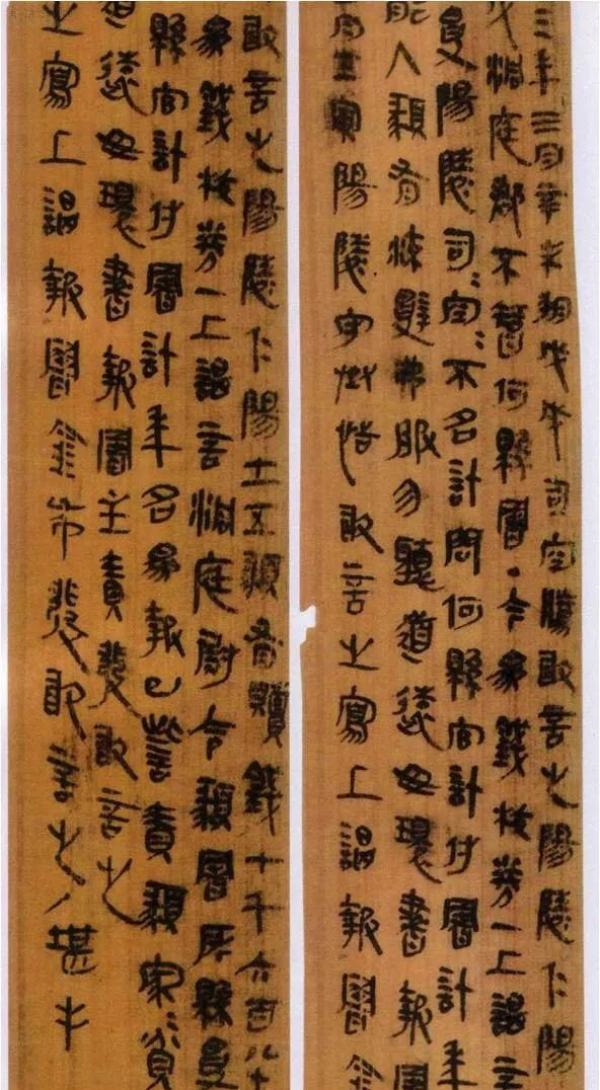 三年三月辛未朔戊戌司空騰敢言之陽陵仁陽
戍洞庭郡不智何縣署・今為錢校券一上謁言
受陽陵司=空=不名計問何縣官計付署計年
能入頯有流辭弗服勿聽道遠毋環書報署
月壬寅陽陵守丞恬敢言之寫上謁報署金
敢言之陽陵仁陽士五頯有贖錢七千六百八十
為錢校券一上謁言洞庭尉令頯署所縣受
縣官計付署計年名為報已訾責頯家=貧
道遠毋環書報署主責發敢言之
之寫上謁報署金布發敢言之/堪手